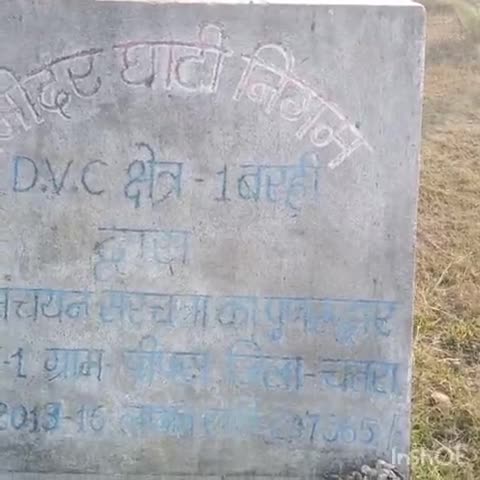 मोदर घाटी निगम
D.V.C क्षेत्र - 1 बरही
द्वारा
संचयन संरचना का पुनरुद्धार
-1 ग्राम- पीपरा जिला- चतरा
2013-16 लागत राशि 237365/
InShOt